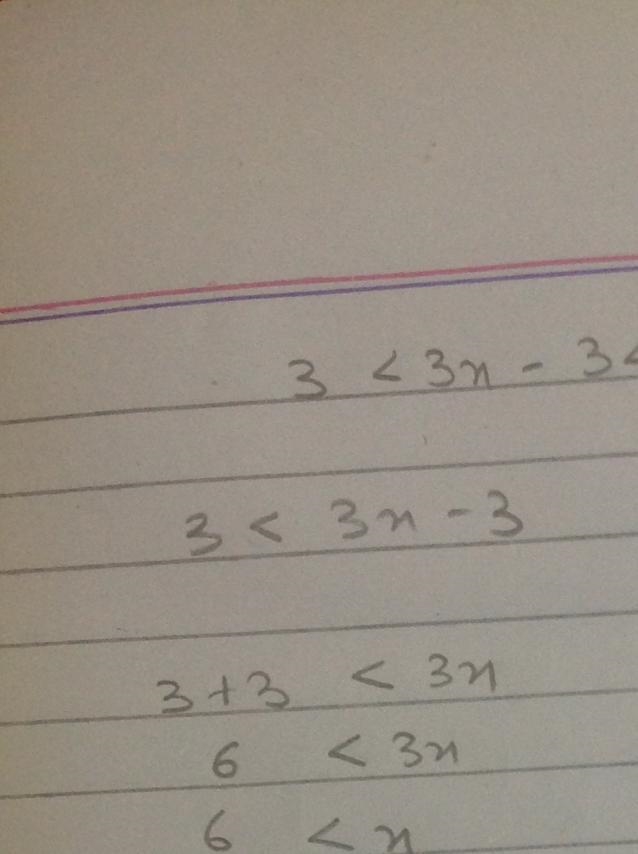 3 < 3x - 3 <
3 < 3x - 3
3 + 3 < 3x
6 < 3x
6 < x